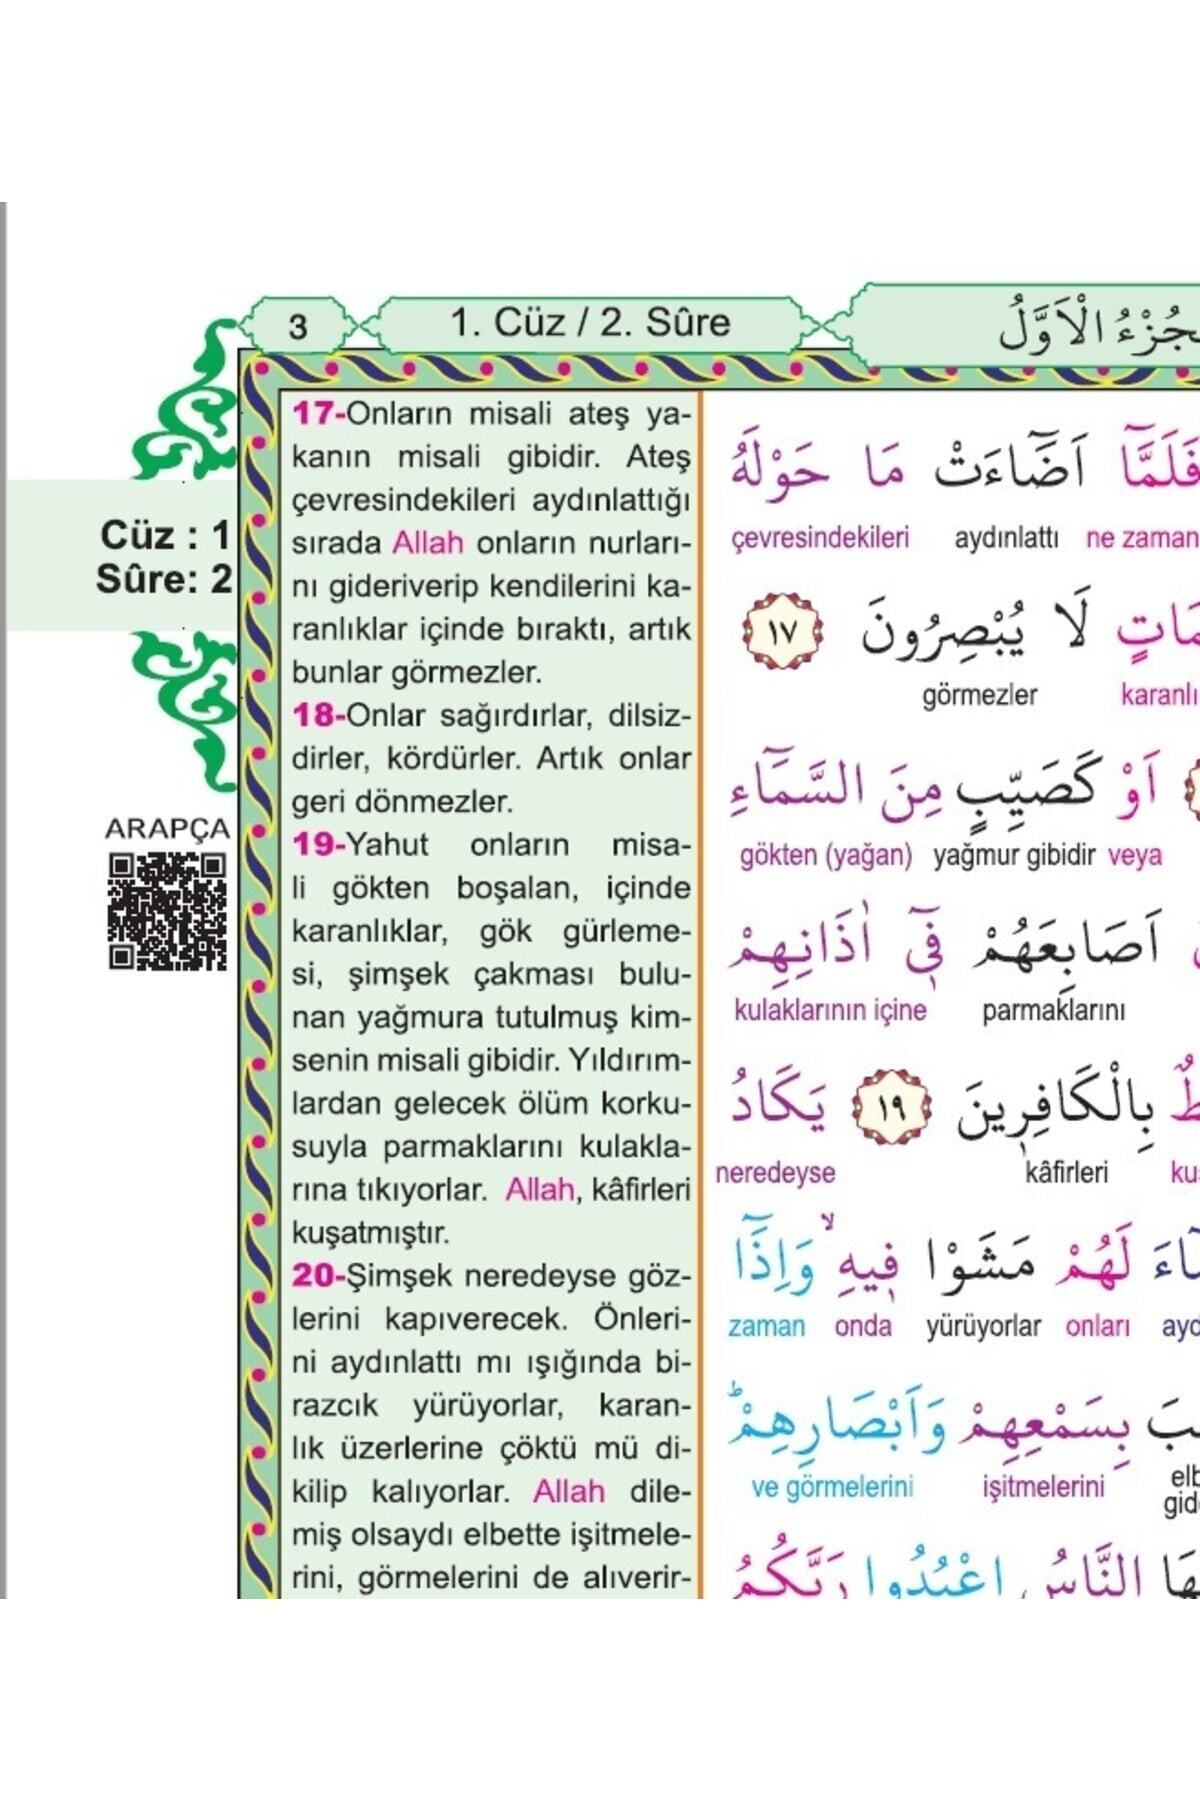 3
1. Cüz / 2. Sûre
اَلْجُزْءُ الْاَوَّلُ
Cüz : 1
Sûre: 2
ARAPÇA
17-Onların misali ateş ya-
kanın misali gibidir. Ateş
çevresindekileri aydınlattığı
sırada Allah onların nurları-
nı gideriverip kendilerini ka-
ranlıklar içinde bıraktı, artık
bunlar görmezler.
18-Onlar sağırdırlar, dilsiz-
dirler, kördürler. Artık onlar
geri dönmezler.
19-Yahut onların misa-
li gökten boşalan, içinde
karanlıklar, gök gürleme-
si, şimşek çakması bulu-
nan yağmura tutulmuş kim-
senin misali gibidir. Yıldırım-
lardan gelecek ölüm korku-
suyla parmaklarını kulakla-
rına tıkıyorlar. Allah, kâfirleri
kuşatmıştır.
20-Şimşek neredeyse göz-
lerini kapıverecek. Önleri-
ni aydınlattı mı ışığında bi-
razcık yürüyorlar, karan-
lık üzerlerine çöktü mü di-
kilip kalıyorlar. Allah dile-
miş olsaydı elbette işitmele-
rini, görmelerini de alıverir-
فَلَمَّٓا اَضَٓاءَتْ مَا حَوْلَهُ
çevresindekileri aydınlattı ne zaman
لَا يُبْصِرُونَ ١٧
görmezler karanlı
اَوْ كَصَيِّبٍ مِنَ السَّمَٓاءِ
gökten (yağan) yağmur gibidir veya
اَصَابِعَهُمْ فٖٓي اٰذَانِهِمْ
kulaklarının içine parmaklarını
بِالْكَافِرٖينَ ١٩ يَكَادُ
neredeyse kâfirleri kuş
لَهُمْ مَشَوْا فٖيهِۙ وَاِذَٓا
zaman onda yürüyorlar onları ayd
بِسَمْعِهِمْ وَاَبْصَارِهِمْۜ
ve görmelerini işitmelerini elb
gide
النَّاسُ اعْبُدُوا رَبَّكُمُ